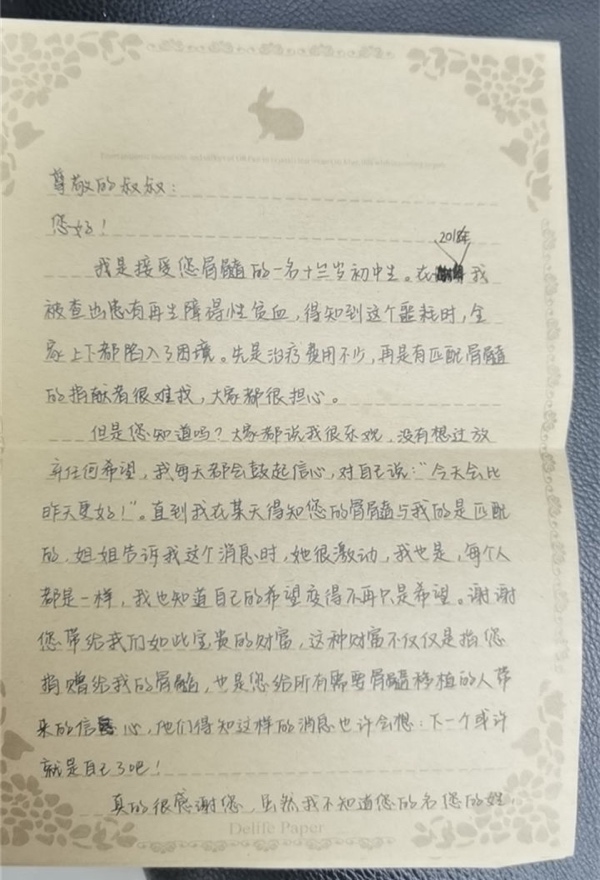 尊敬的叔叔：
您好！
2018年
我是接受您骨髓的一名十三岁初中生。在我
被查出患有再生障碍性贫血，得知到这个噩耗时，全
家上下都陷入了困境。先是治疗费用不少，再是有匹配骨髓
的捐献者很难找，大家都很担心。
但是您知道吗？大家都说我很乐观，没有想过放
弃任何希望，我每天都会鼓起信心，对自己说：“今天会比
昨天更好！”。直到我在某天得知您的骨髓与我的是匹配
的，姐姐告诉我这个消息时，她很激动，我也是，每个人
都是一样，我也知道自己的希望变得不再只是希望。谢谢
您带给我们如此宝贵的财富，这种财富不仅仅是指您
捐赠给我的骨髓，也是您给所有需要骨髓移植的人带
来的信心，他们得知这样的消息也许会想：下一个或许
就是自己了吧！
真的很感谢您，虽然我不知道您的名您的姓，
Delife Paper